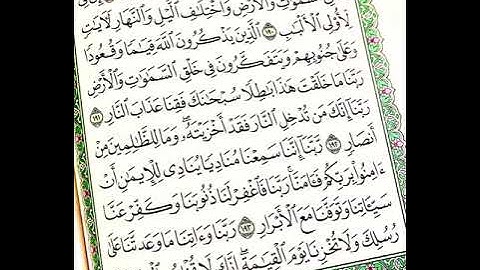 السَّمَٰوَٰتِ وَالْأَرْضِ وَاخْتِلَٰفِ الَّيْلِ وَالنَّهَارِ لَءَايَٰتٍ
لِّأُو۟لِى الْأَلْبَٰبِ ١٩٠ الَّذِينَ يَذْكُرُونَ اللَّهَ قِيَٰمًا وَقُعُودًا
وَعَلَىٰ جُنُوبِهِمْ وَيَتَفَكَّرُونَ فِى خَلْقِ السَّمَٰوَٰتِ وَالْأَرْضِ
رَبَّنَا مَا خَلَقْتَ هَٰذَا بَٰطِلًا سُبْحَٰنَكَ فَقِنَا عَذَابَ النَّارِ ١٩١
رَبَّنَآ إِنَّكَ مَن تُدْخِلِ النَّارَ فَقَدْ أَخْزَيْتَهُۥ ۖ وَمَا لِلظَّٰلِمِينَ مِنْ
أَنصَارٍ ١٩٢ رَّبَّنَآ إِنَّنَا سَمِعْنَا مُنَادِيًا يُنَادِى لِلْإِيمَٰنِ أَنْ
ءَامِنُوا۟ بِرَبِّكُمْ فَـَٔامَنَّا ۚ رَبَّنَا فَاغْفِرْ لَنَا ذُنُوبَنَا وَكَفِّرْ عَنَّا
سَيِّـَٔاتِنَا وَتَوَفَّنَا مَعَ الْأَبْرَارِ ١٩٣ رَبَّنَا وَءَاتِنَا مَا وَعَدتَّنَا عَلَىٰ
رُسُلِكَ وَلَا تُخْزِنَا يَوْمَ الْقِيَٰمَةِ ۗ إِنَّكَ لَا